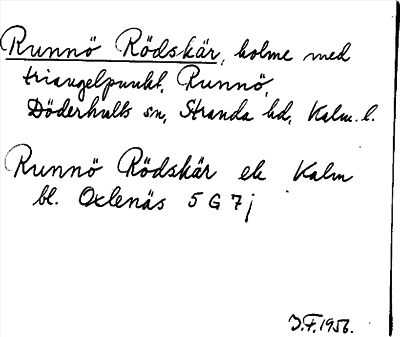 Runnö Rödskär, holme med
triangelpunkt, Runnö,
Döderhults sn, Stranda hd, Kalm. l.
Runnö Rödskär ek Kalm
bl. Oxlenäs 5 G 7 j
J.F. 1956.